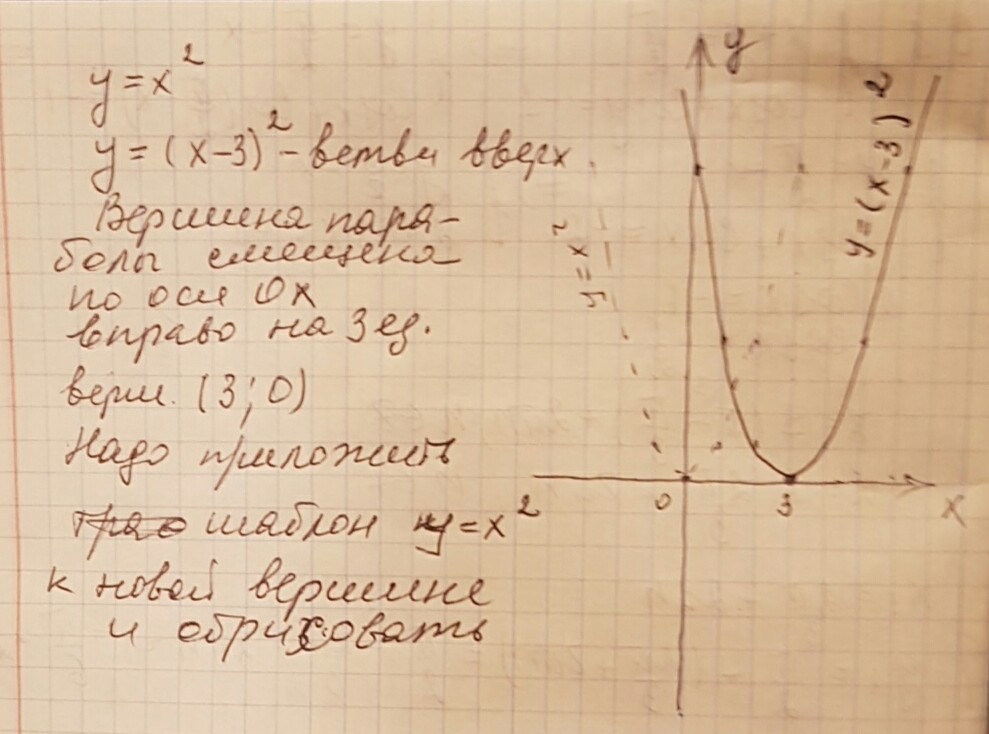 y = x²
y = (x-3)² - ветви вверх.
Вершина пара-
болы смещена
по оси Ox
вправо на 3 ед.
верш. (3; 0)
Надо приложить
шаблон y = x²
к новой вершине
и обрисовать
y
y = x²
y = (x-3)²
0
3
x